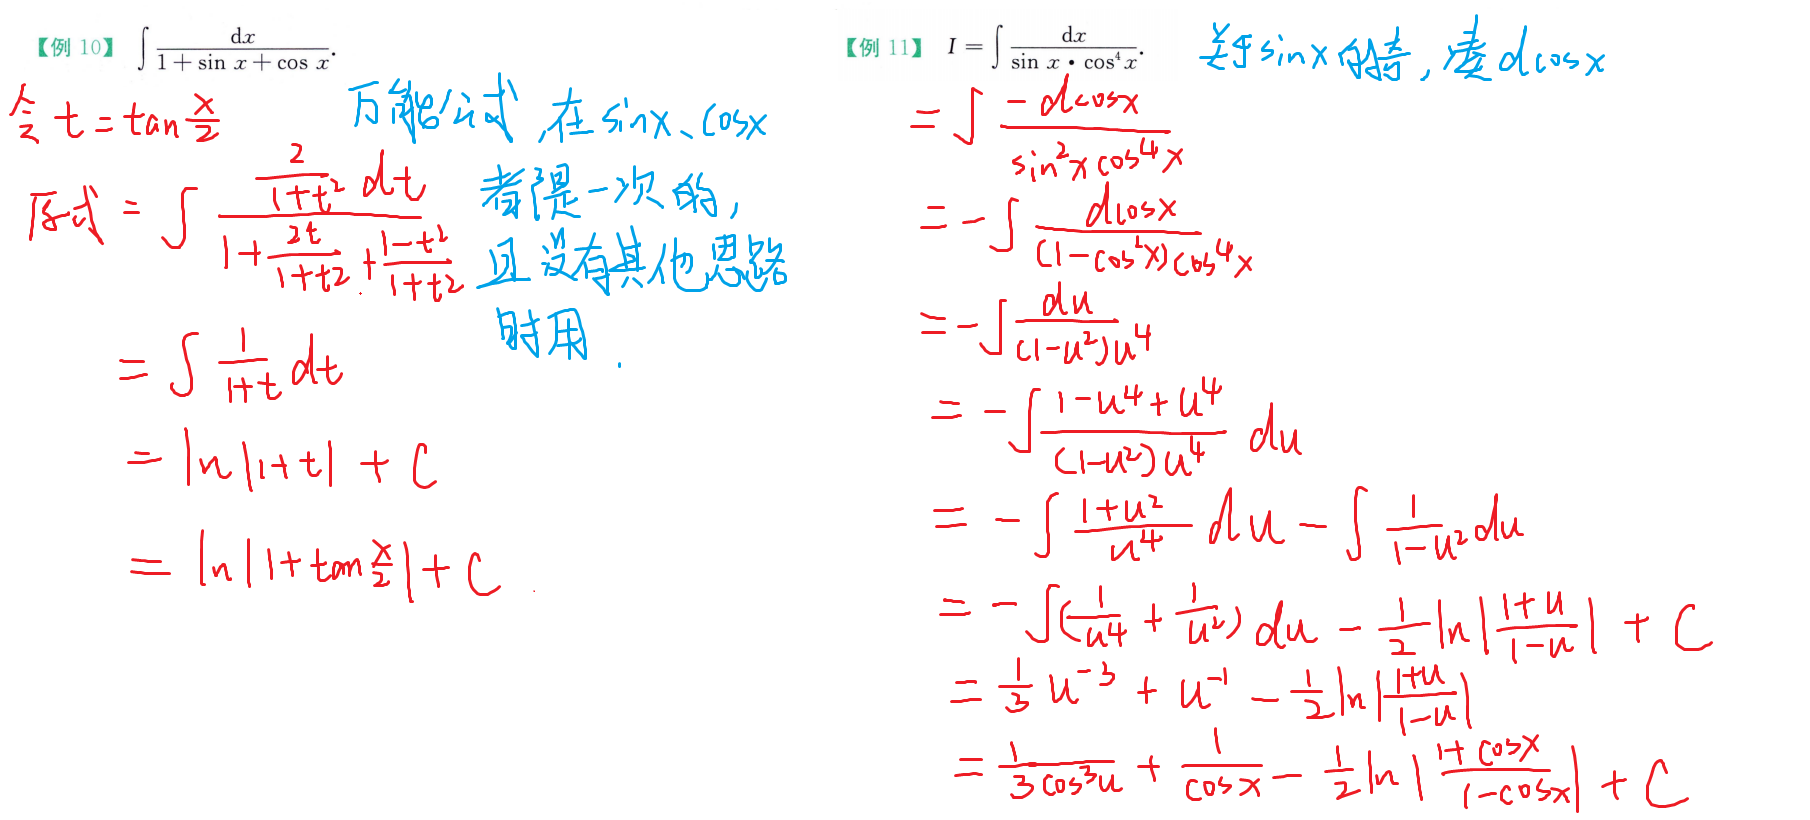 【例 10】 ∫ dx/(1 + sin x + cos x).
令 t = tan x/2
万能公式,在 sinx、cosx
都是一次的,
且没有其他思路
时用.
原式 = ∫ (2/(1+t²) dt)/(1 + 2t/(1+t²) + (1-t²)/(1+t²))
= ∫ 1/(1+t) dt
= ln|1+t| + C
= ln|1+tan x/2| + C.
【例 11】 I = ∫ dx/(sin x · cos⁴ x).
关于sinx的奇,凑dcosx
= ∫ -dcosx/(sin²x cos⁴x)
= -∫ dcosx/((1-cos²x)cos⁴x)
= -∫ du/((1-u²)u⁴)
= -∫ (1-u⁴+u⁴)/((1-u²)u⁴) du
= -∫ (1+u²)/u⁴ du - ∫ 1/(1-u²) du
= -∫(1/u⁴ + 1/u²) du - 1/2 ln|(1+u)/(1-u)| + C
= 1/3 u⁻³ + u⁻¹ - 1/2 ln|(1+u)/(1-u)|
= 1/(3cos³u) + 1/cosx - 1/2 ln|(1+cosx)/(1-cosx)| + C